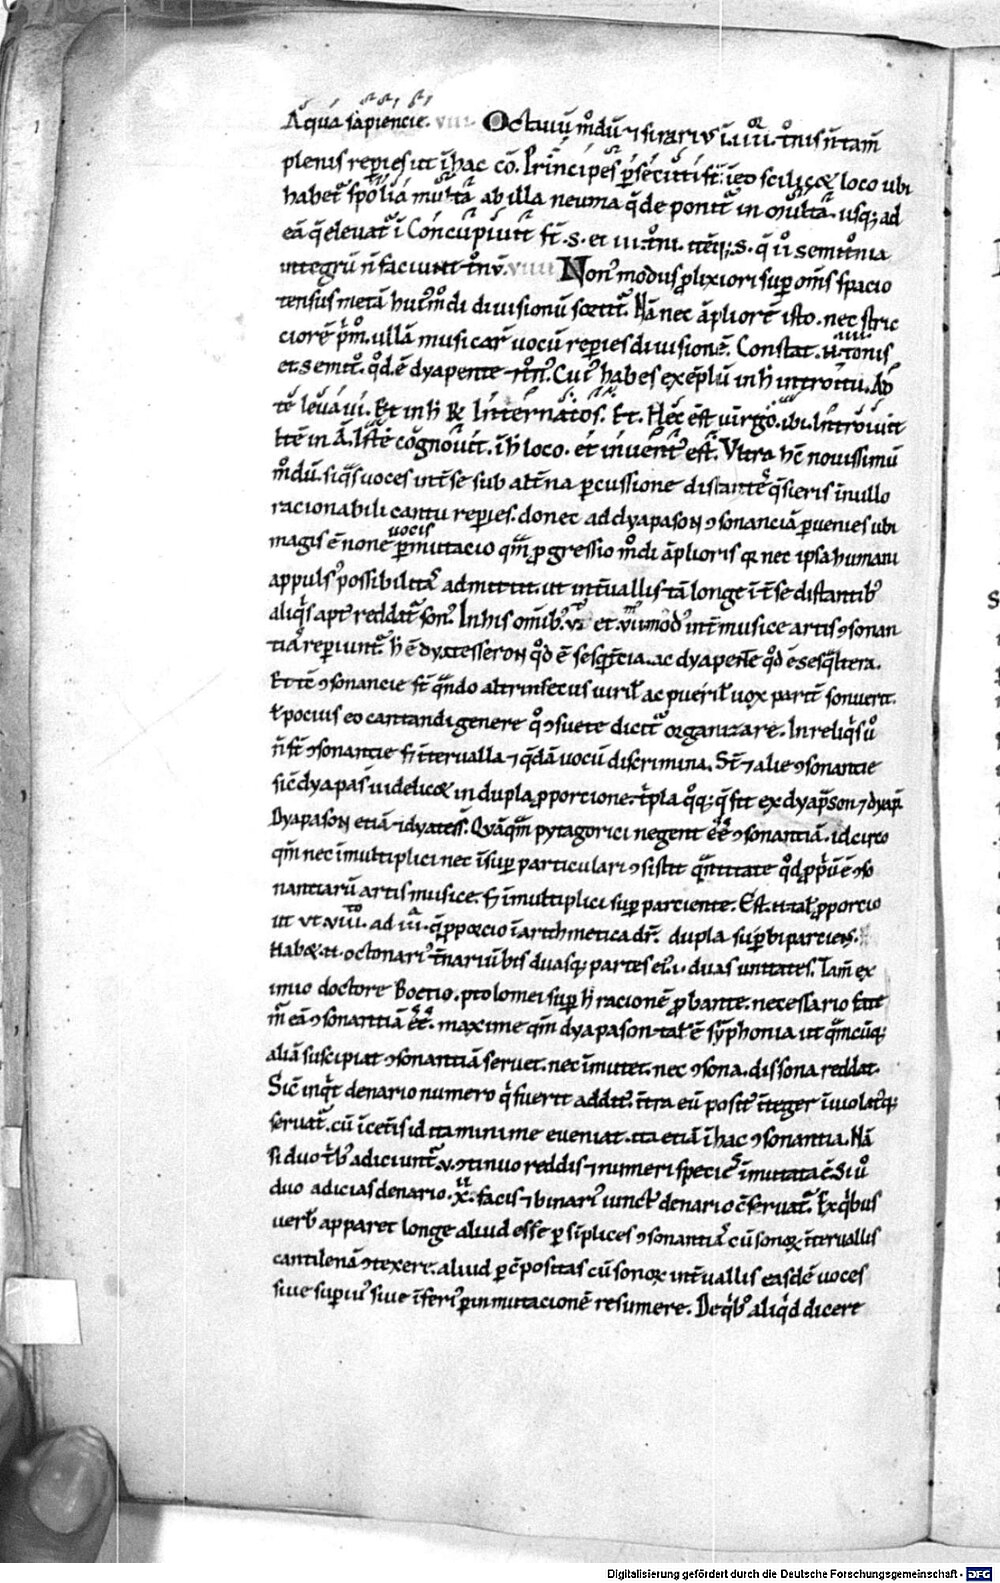 Aqua sapiencie. viii. Octauū mͦdū ⁊ si rariꝰ i. iiii. tͦnis ñ tam̄
plenis reperies ut ī hac cō. Prīncipes ꝑsecuti st̄. in eo scilicet loco ubi
habet᷑ spolia multa ab illa neuma q̄ deponit᷑ in multa. usq; ad
eā q̄ eleuat᷑ ī Concupiuit st̄ .s. et iii. toni.
integrū ñ faciunt tonū. viiii Nonꝰ modus ꝓlixiori suꝑ om̄s spacio
tensus metā huiꝰmodi diuisionū sortit᷑. Nā nec āpliorē isto. nec stric
ciorē pͥmo. ullā musicarū uocū reperies diuisionē. Constat. n. iii. tonis
et semitͦ. qͦd ē dyapente Cuiꝰ habes exēplū in hͦ introitu. Ad
te leuaui. Et in hͦ R̷ Internatos. Et. Hec est uirgo. ubi. Introiuit
Itē in A. Iste cognouit. ī hͦ loco. et inuentꝰ est. Vltra hc̄ nouissimū
mͦdū. si qͣs uoces int̄ se sub alt̄na ꝑcussione distante q̄sieris ī nullo
racionabili cantu reperies. donec ad dyapason ꝯsonanciā ꝑuenies ubi
magis ē none uocis ꝑmutacio qͣm ꝓgressio mͦdi āplioris qꝛ nec ipsa humani
appulsꝰ possibilitas admittit. ut int̄uallis tā longe ī t̄ se distantibꝰ
aliqͥs aptꝰ reddat᷑ sonꝰ. In his omībꝰ vi et viimodꝰ int̄ musice artis ꝯsonan
tia reperiunt᷑. hͦ ē dyatesseron qͦd ē sesqͥt̄cia. ac dyapente qͦd ē sesqͣltera.
Et tē ꝯsonancie st̄ qn̄do altrinsecus uiril᷑ ac pueril᷑ uox parit᷑ sonuerit.
l᷑ pocius eo cantandi genere qͦ ꝯsuete dicit᷑ organizare. In reliqͥs uͦ
ñ st̄ ꝯsonantie sꝫ īterualla ⁊ qͣdā uocū discrimina. St̄ ⁊ alie ꝯsonantie
sic̄ dyapas̄ uidelicet in dupla ꝓporcione. tͥpla qͦq; q̄ fit ex dyapson ⁊ dyap̄
Dyapason etiā ⁊ dyatess̄. Quāqͣm pytagorici negent eē ꝯsonantiā. idcirco
qm̄ nec ī multiplici nec ī suꝑ particulari ꝯsistit qͣntitate qͦd ꝓpͥū ē ꝯso
nantiarū artis musice. sꝫ ī multiplici suꝑ parciente. Est. n. tal᷑ ꝓporcio
ut vt. viiito. ad iii. q̄ ꝓporcio ī arithmetica dr̄. dupla suꝑbiparciens.
Habet. n. octonariꝰ t̄nariū bis duasq; partes eiꝰ. i. duas unitates. Tam̄ ex
imio doctore Boetio. ptolomei suꝑ hͦ racionē ꝓbante. necessario
eā ꝯsonantiā eē. maxime qm̄ dyapason tal᷑ ē symphonia ut qͣmcūq;
aliā suscipiat ꝯsonantiā seruet. nec īmutet. nec ꝯsona. dissona reddat.
Sic̄ inqͥt denario numero qͥ fuerit additꝰ. īfra eū positꝰ īteger īuolatꝰq;
seruat᷑. cū ī cet̄is id ita minime eueniat. ita etiā ī hac ꝯsonantia. Nā
si duo tͥbꝰ adiciunt᷑ .v. ꝯtinuo reddis ⁊ numeri species īmutata ē. Si uͦ
duo adicias denario. xii. facis ⁊ binariꝰ iunctꝰ denario ꝯseruat᷑. Ex qͥbus
uerbꝭ apparet longe aliud esse ꝑ sīplices ꝯsonantias cū sonoꝝ īteruallis
cantilenā ꝯtexere. aliud ꝑ cōpositas cū sonoꝝ int̄uallis easdē uoces
siue suꝑiꝰ siue īferiꝰ ꝑ inmutacionē resumere. De qͥbꝰ aliqͥd dicere
Digitalisierung gefördert durch die Deutsche Forschungsgemeinschaft - DFG